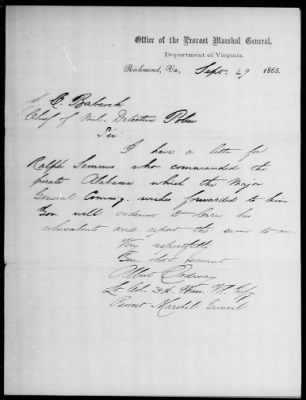 Office of the Provost Marshal General,
Department of Virginia,
Richmond, Va, Sept. 29 1865.
C. Babcock
Chief of Mil. Detective Police
Sir:
I have a letter for
Ralph Semmes who commanded the
pirate Alabama which the Major
General Comdg. wishes forwarded to him
You will endeavor to learn his
whereabouts and report the same to me
Very respectfully
Your Obdt Servant
Albert Ordway
Lt Col. 24th Mass. Vt. Infy
Provost Marshal General